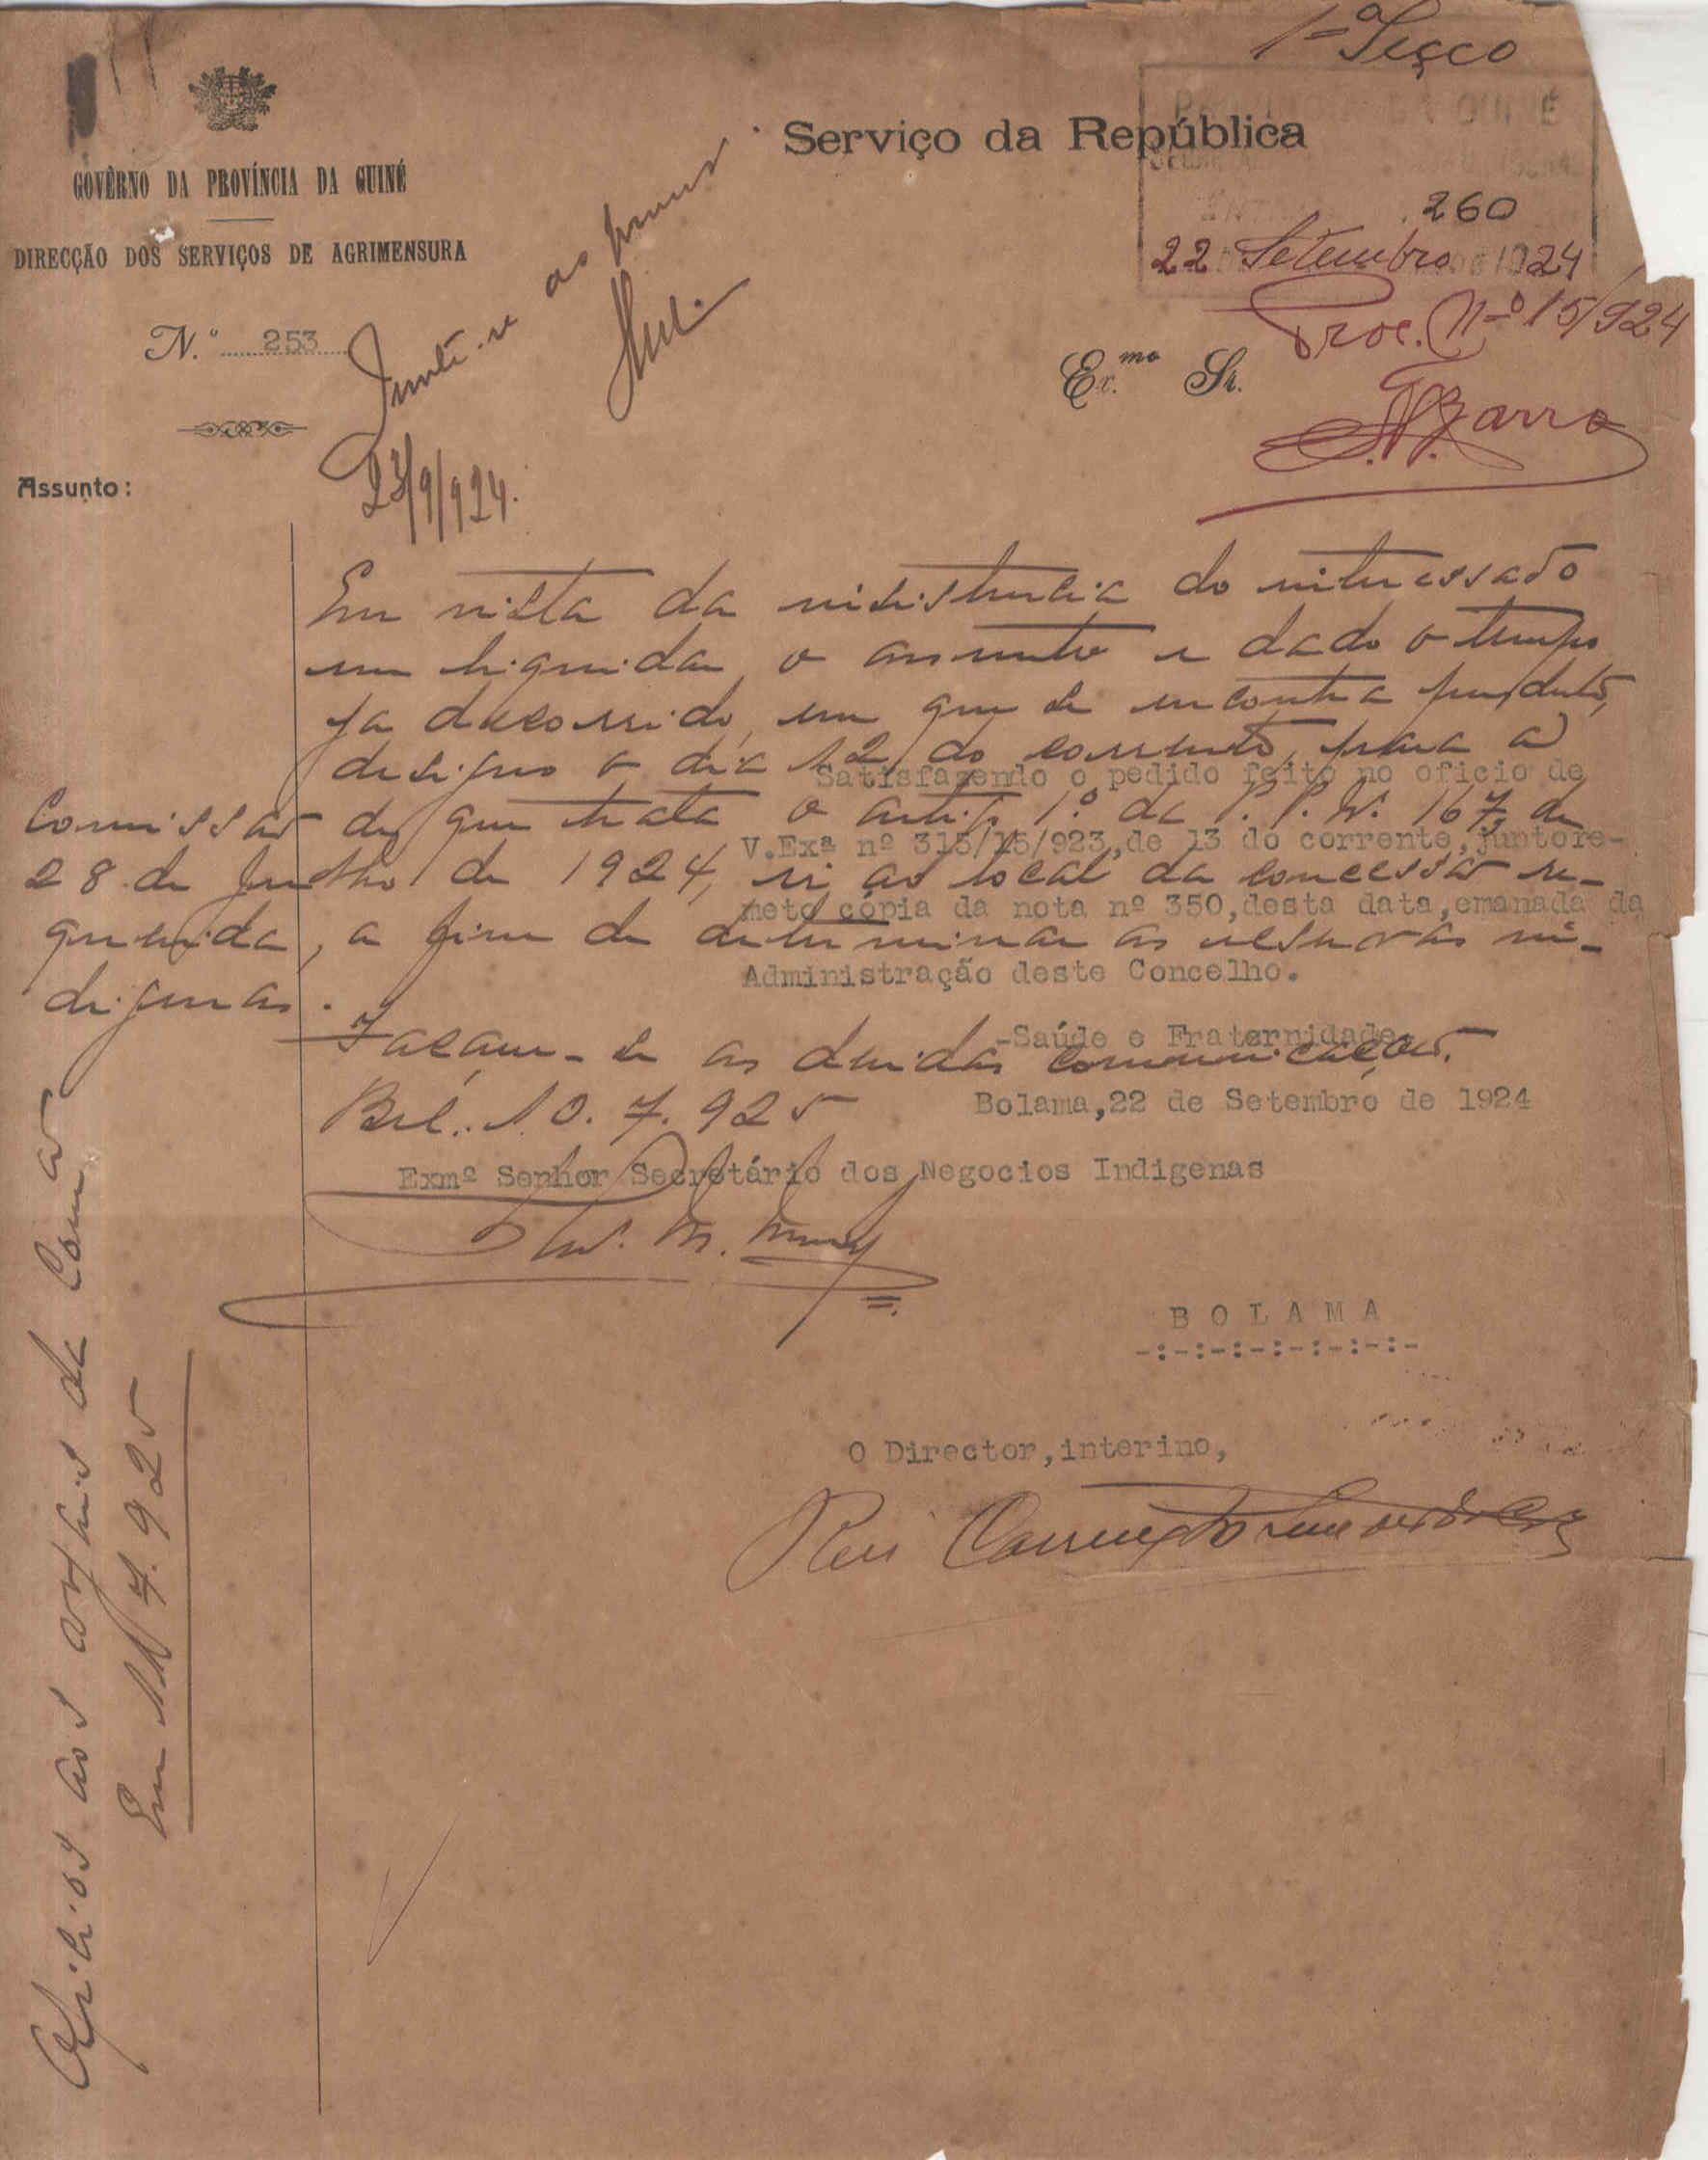 1ª Secção
GOVÊRNO DA PROVÍNCIA DA GUINÉ
DIRECÇÃO DOS SERVIÇOS DE AGRIMENSURA
N.º 253
Assunto:
Serviço da República
PROVINCIA DA GUINÉ
260
22 Setembro 1924
Proc. Nº 15/924
Ex.mo Sr.
Barro
Junte-se
23/9/924.
Em vista da insistencia do interessado
em liquidar o assunto e dado o tempo
já decorrido, em que se encontra pendente,
designo o dia 12 do corrente, para a
Comissão de que trata o artigo 1º. da P. P. Nº. 167, de
28 de Junho de 1924, ir ao local da concessão re-
querida, a fim de determinar as reservas in-
digenas.
Façam-se as devidas comunicações.
Bol. 10.7.925
Satisfazendo o pedido feito no oficio de
V.Exª nº 315/15/923, de 13 do corrente, junto re-
meto cópia da nota nº 350, desta data, emanada da
Administração deste Concelho.
-Saúde e Fraternidade-
Bolama, 22 de Setembro de 1924
Exmº Senhor Secretário dos Negocios Indigenas
BOLAMA
-:-:-:-:-:-:-:-
O Director, interino,
Oficios aos da Com.ão
Em 11.7.925